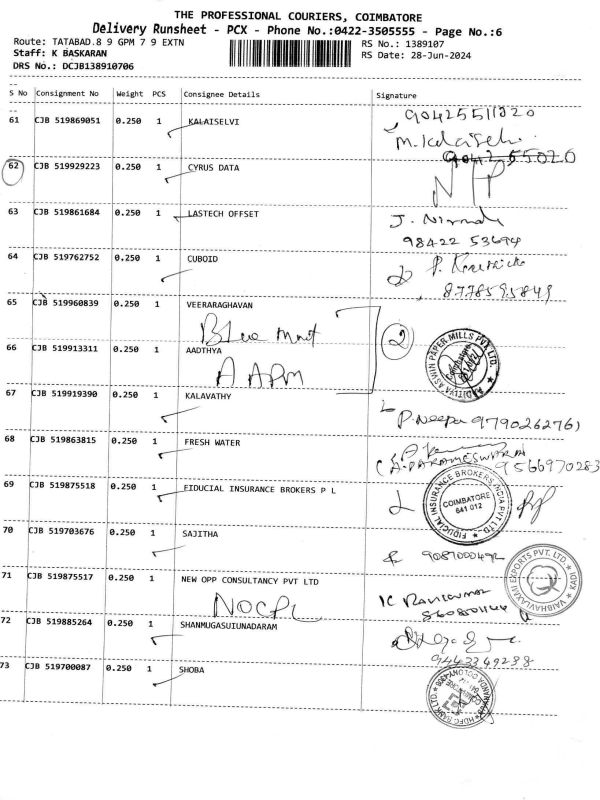 THE PROFESSIONAL COURIERS, COIMBATORE
Delivery Runsheet - PCX - Phone No.:0422-3505555 - Page No.:6
Route: TATABAD.8 9 GPM 7 9 EXTN
RS No.: 1389107
Staff: K BASKARAN
RS Date: 28-Jun-2024
DRS No.: DCJB138910706
S No Consignment No Weight PCS Consignee Details Signature
61 CJB 519869051 0.250 1 KALAISELVI
M. Kalaiselvi
62 CJB 519929223 0.250 1 CYRUS DATA
63 CJB 519861684 0.250 1 LASTECH OFFSET
98422 53694
64 CJB 519762752 0.250 1 CUBOID
8778595849
65 CJB 519960839 0.250 1 VEERARAGHAVAN
Blue Mont
2
ADITYA ASWIN PAPER MILLS PVT. LTD.
66 CJB 519913311 0.250 1 AADTHYA
AAPM
67 CJB 519919390 0.250 1 KALAVATHY
9790262761
68 CJB 519863815 0.250 1 FRESH WATER
(A. PARAMESWARAI
9566970283
69 CJB 519875518 0.250 1 FIDUCIAL INSURANCE BROKERS P L
FIDUCIAL INSURANCE BROKERS INDIA PVT LTD
COIMBATORE
641 012
70 CJB 519703676 0.250 1 SAJITHA
VAIBHAVLAXMI EXPORTS PVT. LTD.
71 CJB 519875517 0.250 1 NEW OPP CONSULTANCY PVT LTD
NOCPL
72 CJB 519885264 0.250 1 SHANMUGASUIUNADARAM
9443349238
73 CJB 519700087 1 SHOBA
HDFC BANK LTD.